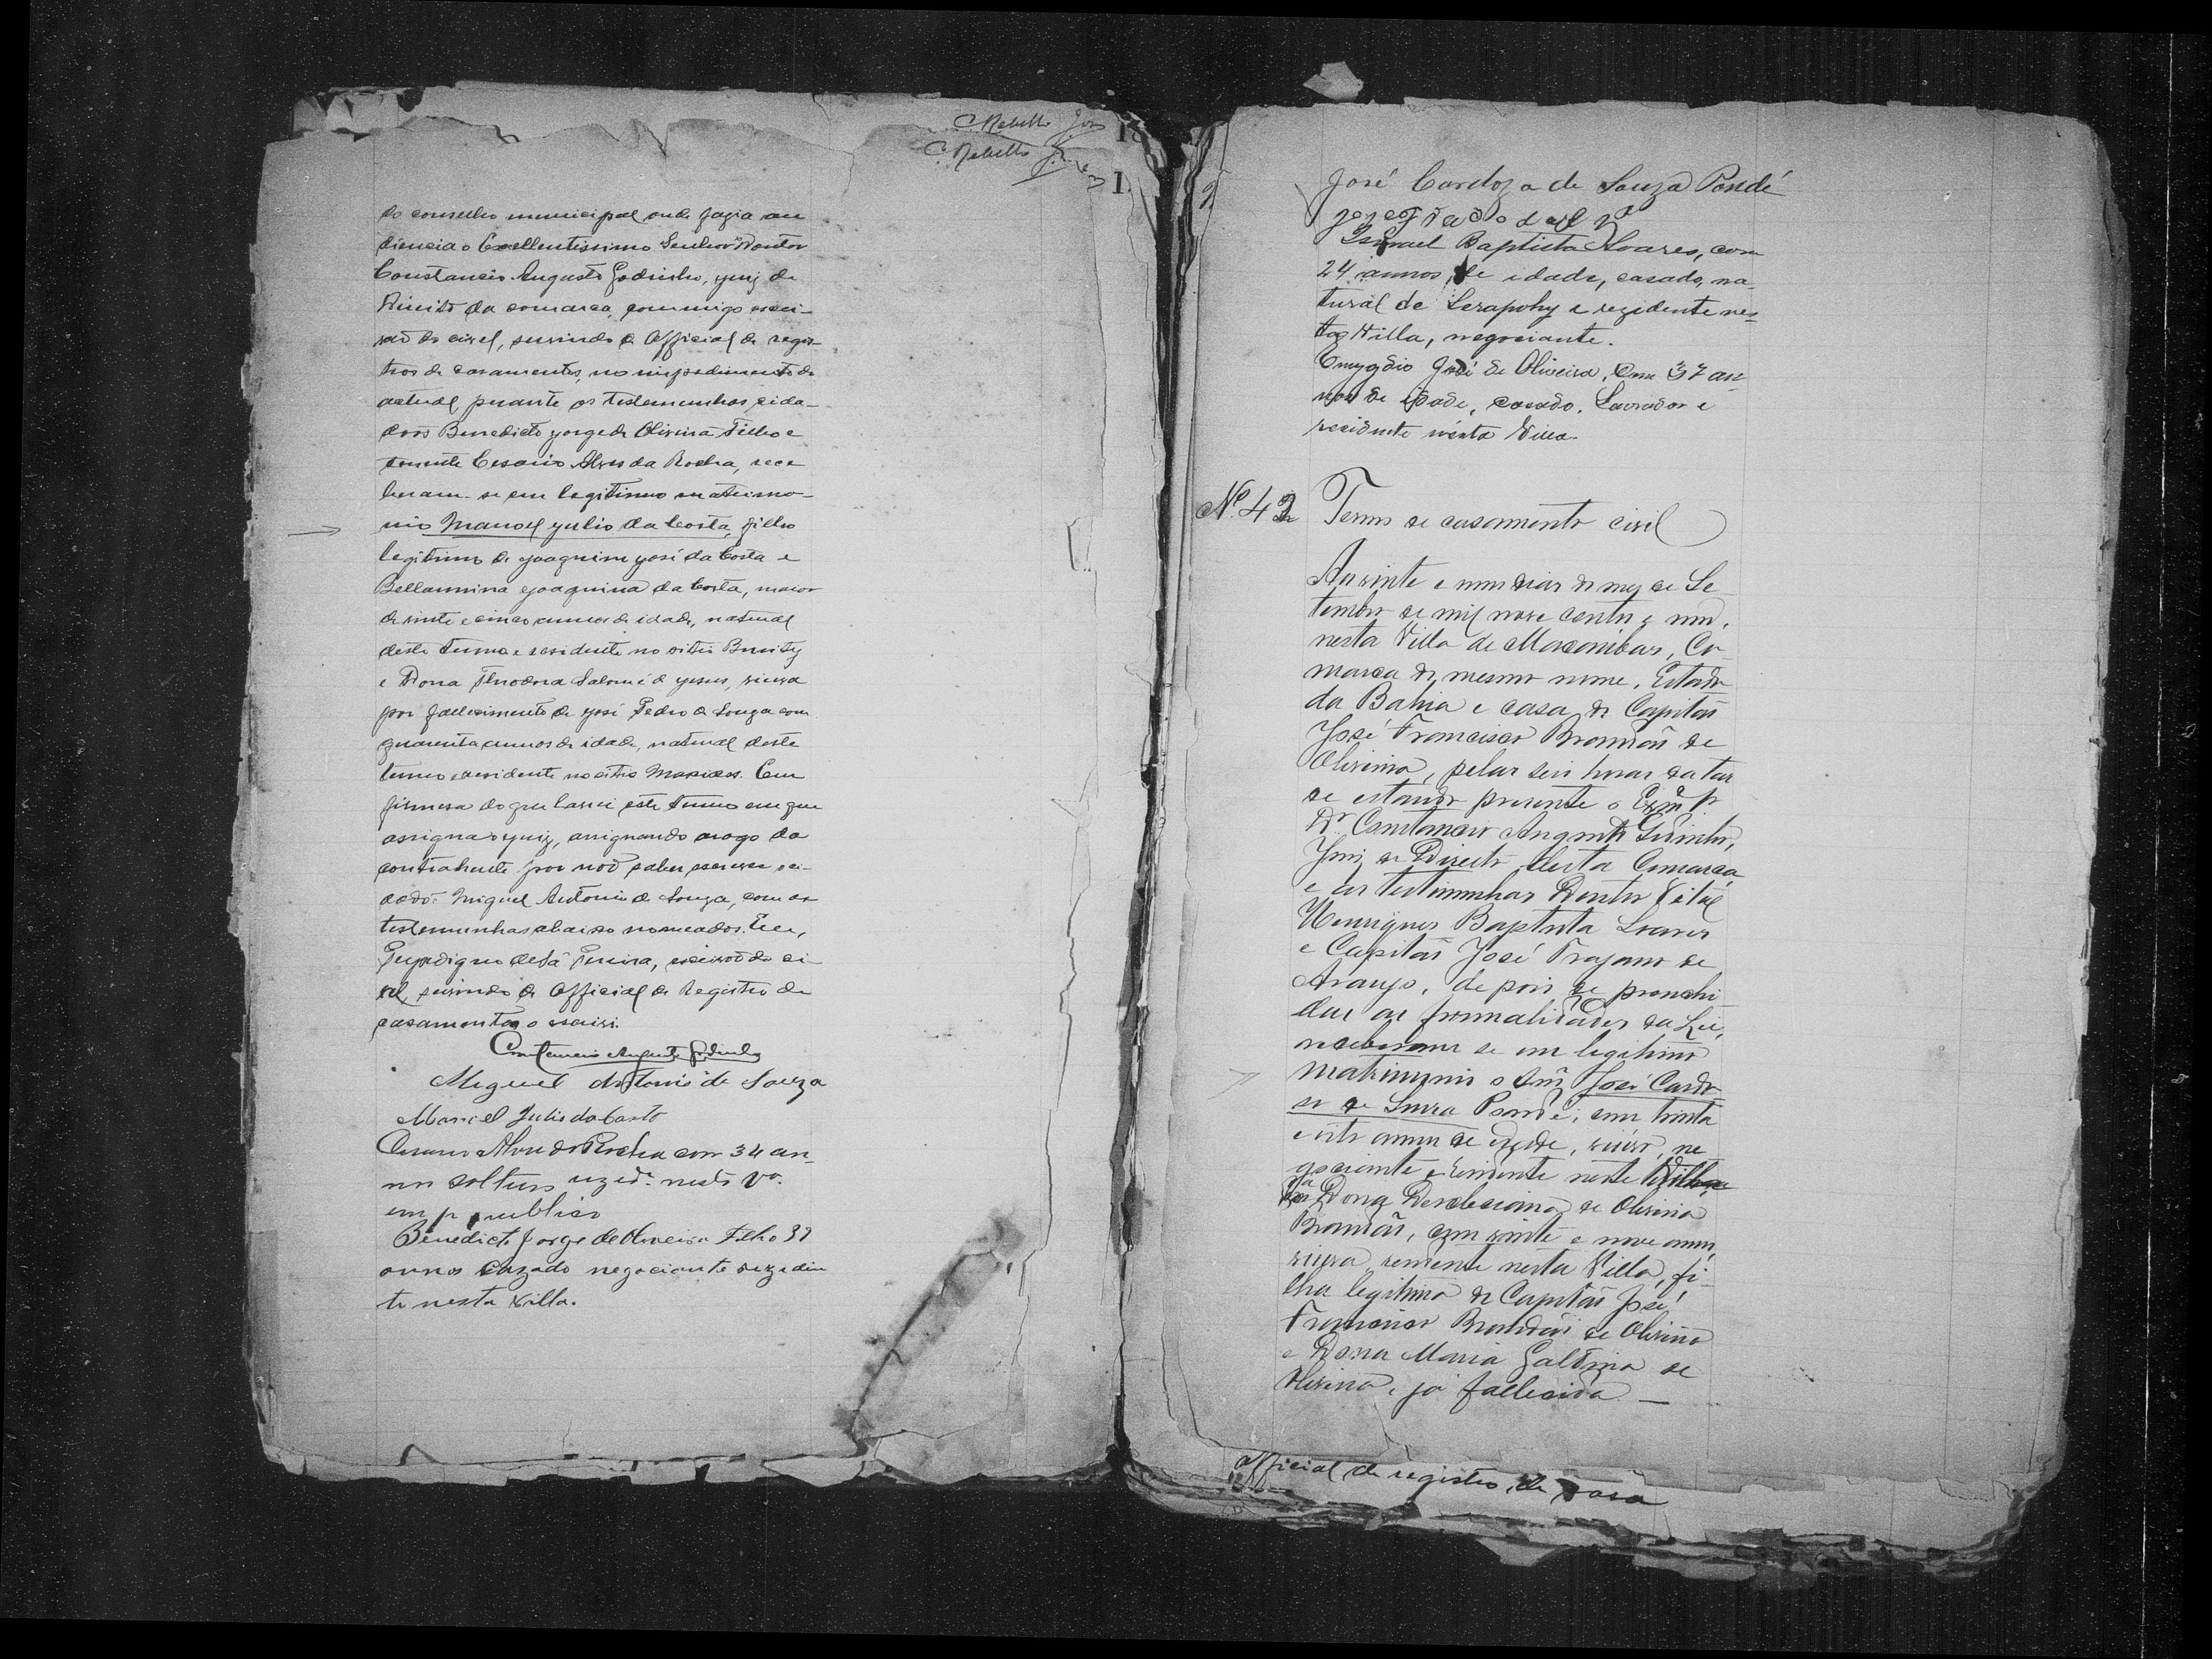 C Rebello
C Rebello
do conselho municipal onde fazia au
diencia o Excellentissimo Senhor Doutor
Constancio Augusto Godinho, juiz de
Direito da comarca, commigo escri-
vão do civel, servindo de Official de regis-
tros de casamentos, no impedimento do
actual perante as testemunhas cida-
dãos Benedicto Jorge de Oliveira Filho e
tenente Cesario Alves da Rocha, rece
beram-se em legitimo matrimo-
nio Manoel Julio da Costa, filho
legitimo de Joaquim José da Costa e
Bellarmina Joaquina da Costa, maior
de vinte e cinco annos de idade, natural
deste termo e residente no sitio Burity
e Dona Theodora Salomé de Jesus, viuva
por fallecimento de José Pedro de Souza com
quarenta annos de idade, natural deste
termo e residente no sitio Em
firmesa do que lavrei este termo em que
assigna o juiz, assignando arogo da
contrahente por não saber escrever o ci-
dadão Miguel Antonio de Souza, com as
testemunhas abaixo nomeados. Eu,
de Sá Pereira, escrivão do ci-
vel, servindo de Official de Registro de
casamentos o escrivi.
Constancio Augusto Godinho
Miguel Antonio de Souza
Manoel Julio da Costa
Cesario Alves da Rocha com 34 an-
nos solteiro rezide. nesta Va.
em p publico
Benedicto Jorge de Oliveira Filho 32
annos cazado negociante rezedin
te nesta villa.
José Cardozo de Souza Pondé
Ismael Baptista Soares, com
24 annos de idade, casado, na-
tural de e rezidente nes-
ta Villa, negociante.
Emygdio José de Oliveira, com 37 an-
nos de idade, casado, Lavrador e
residente nésta Villa.
No. 42 Termo de casamento civil
Aos vinte e um dias do mez de Se
tembro de mil nove centos e um,
nesta Villa de Macaúbas, Co-
marca do mesmo nome, Estado
da Bahia e casa do Capitão
José Francisco Brandão de
Oliveira, pelas seis horas da tar
de estando presente o Exmo Sr
Dr Constancio Augusto Godinho,
Juiz de Direito desta Comarca
e as testimunhas Doutor Vital
Henriques Baptista Soares
e Capitão José Trajano de
Araujo, depois de prenchi
das as formalidades da Lei,
receberam se em legitimo
matrimonio o José Cardo-
so de Souza Pondé, com trinta
e oito annos de idade, viuvo, ne
gociante e residente neste Villa
Dona de Oliveira
Brandão, com vinte e nove annos,
viuva residente nesta Villa, fi-
lha legitima do Capitão José
Francisco Brandão de Oliveira
e Dona Maria Galdina de
Oliveira, já fallecida —
Official de registro de casa